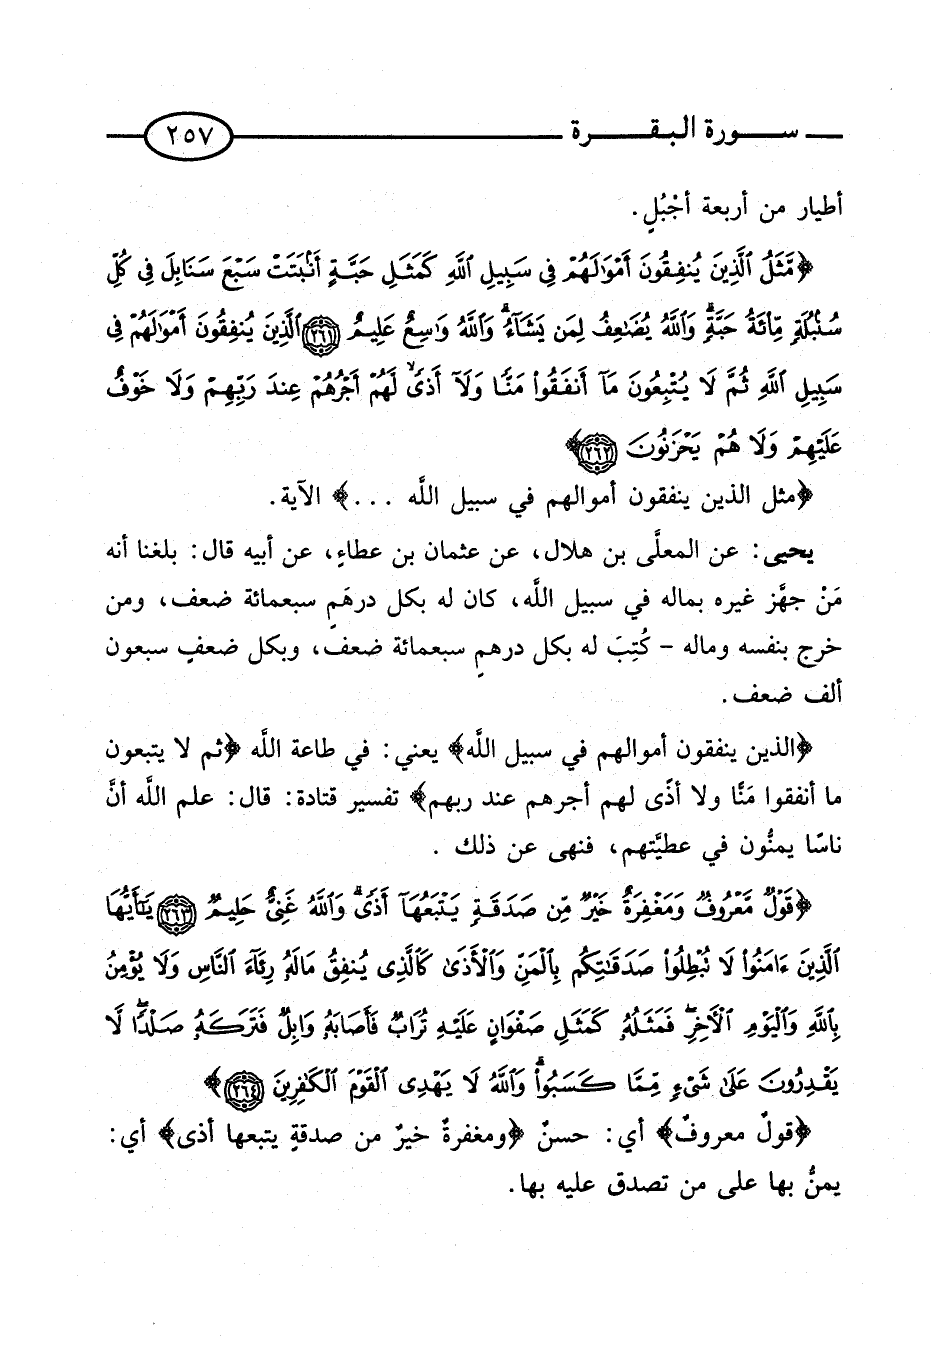 سورة البقرة ٢٥٧
أطيار من أربعة أجْبُلٍ.
﴿مَّثَلُ ٱلَّذِينَ يُنفِقُونَ أَمْوَٰلَهُمْ فِى سَبِيلِ ٱللَّهِ كَمَثَلِ حَبَّةٍ أَنۢبَتَتْ سَبْعَ سَنَابِلَ فِى كُلِّ
سُنۢبُلَةٍ مِّا۟ئَةُ حَبَّةٍ ۗ وَٱللَّهُ يُضَٰعِفُ لِمَن يَشَآءُ ۗ وَٱللَّهُ وَٰسِعٌ عَلِيمٌ ٢٦١ ٱلَّذِينَ يُنفِقُونَ أَمْوَٰلَهُمْ فِى
سَبِيلِ ٱللَّهِ ثُمَّ لَا يُتْبِعُونَ مَآ أَنفَقُوا۟ مَنًّا وَلَآ أَذًى ۙ لَّهُمْ أَجْرُهُمْ عِندَ رَبِّهِمْ وَلَا خَوْفٌ
عَلَيْهِمْ وَلَا هُمْ يَحْزَنُونَ ٢٦٢﴾
﴿مثل الذين ينفقون أموالهم في سبيل اللَّه ...﴾ الآية.
يحيى: عن المعلَّى بن هلال، عن عثمان بن عطاءٍ، عن أبيه قال: بلغنا أنه
مَنْ جهَّز غيره بماله في سبيل اللَّه، كان له بكل درهَمٍ سبعمائة ضعف، ومن
خرج بنفسه وماله - كُتِبَ له بكل درهمٍ سبعمائة ضعف، وبكل ضعفٍ سبعون
ألف ضعف.
﴿الذين ينفقون أموالهم في سبيل اللَّه﴾ يعني: في طاعة اللَّه ﴿ثم لا يتبعون
ما أنفقوا مَنًّا ولا أذًى لهم أجرهم عند ربهم﴾ تفسير قتادة: قال: علم اللَّه أنَّ
ناسًا يمنُّون في عطيَّتهم، فنهى عن ذلك .
﴿قَوْلٌ مَّعْرُوفٌ وَمَغْفِرَةٌ خَيْرٌ مِّن صَدَقَةٍ يَتْبَعُهَآ أَذًى ۗ وَٱللَّهُ غَنِىٌّ حَلِيمٌ ٢٦٣ يَٰٓأَيُّهَا
ٱلَّذِينَ ءَامَنُوا۟ لَا تُبْطِلُوا۟ صَدَقَٰتِكُم بِٱلْمَنِّ وَٱلْأَذَىٰ كَٱلَّذِى يُنفِقُ مَالَهُۥ رِئَآءَ ٱلنَّاسِ وَلَا يُؤْمِنُ
بِٱللَّهِ وَٱلْيَوْمِ ٱلْآخِرِ ۖ فَمَثَلُهُۥ كَمَثَلِ صَفْوَانٍ عَلَيْهِ تُرَابٌ فَأَصَابَهُۥ وَابِلٌ فَتَرَكَهُۥ صَلْدًا ۖ لَّا
يَقْدِرُونَ عَلَىٰ شَىْءٍ مِّمَّا كَسَبُوا۟ ۗ وَٱللَّهُ لَا يَهْدِى ٱلْقَوْمَ ٱلْكَٰفِرِينَ ٢٦٤﴾
﴿قولٌ معروفٌ﴾ أي: حسنٌ ﴿ومغفرةٌ خيرٌ من صدقةٍ يتبعها أذى﴾ أي:
يمنُّ بها على من تصدق عليه بها.